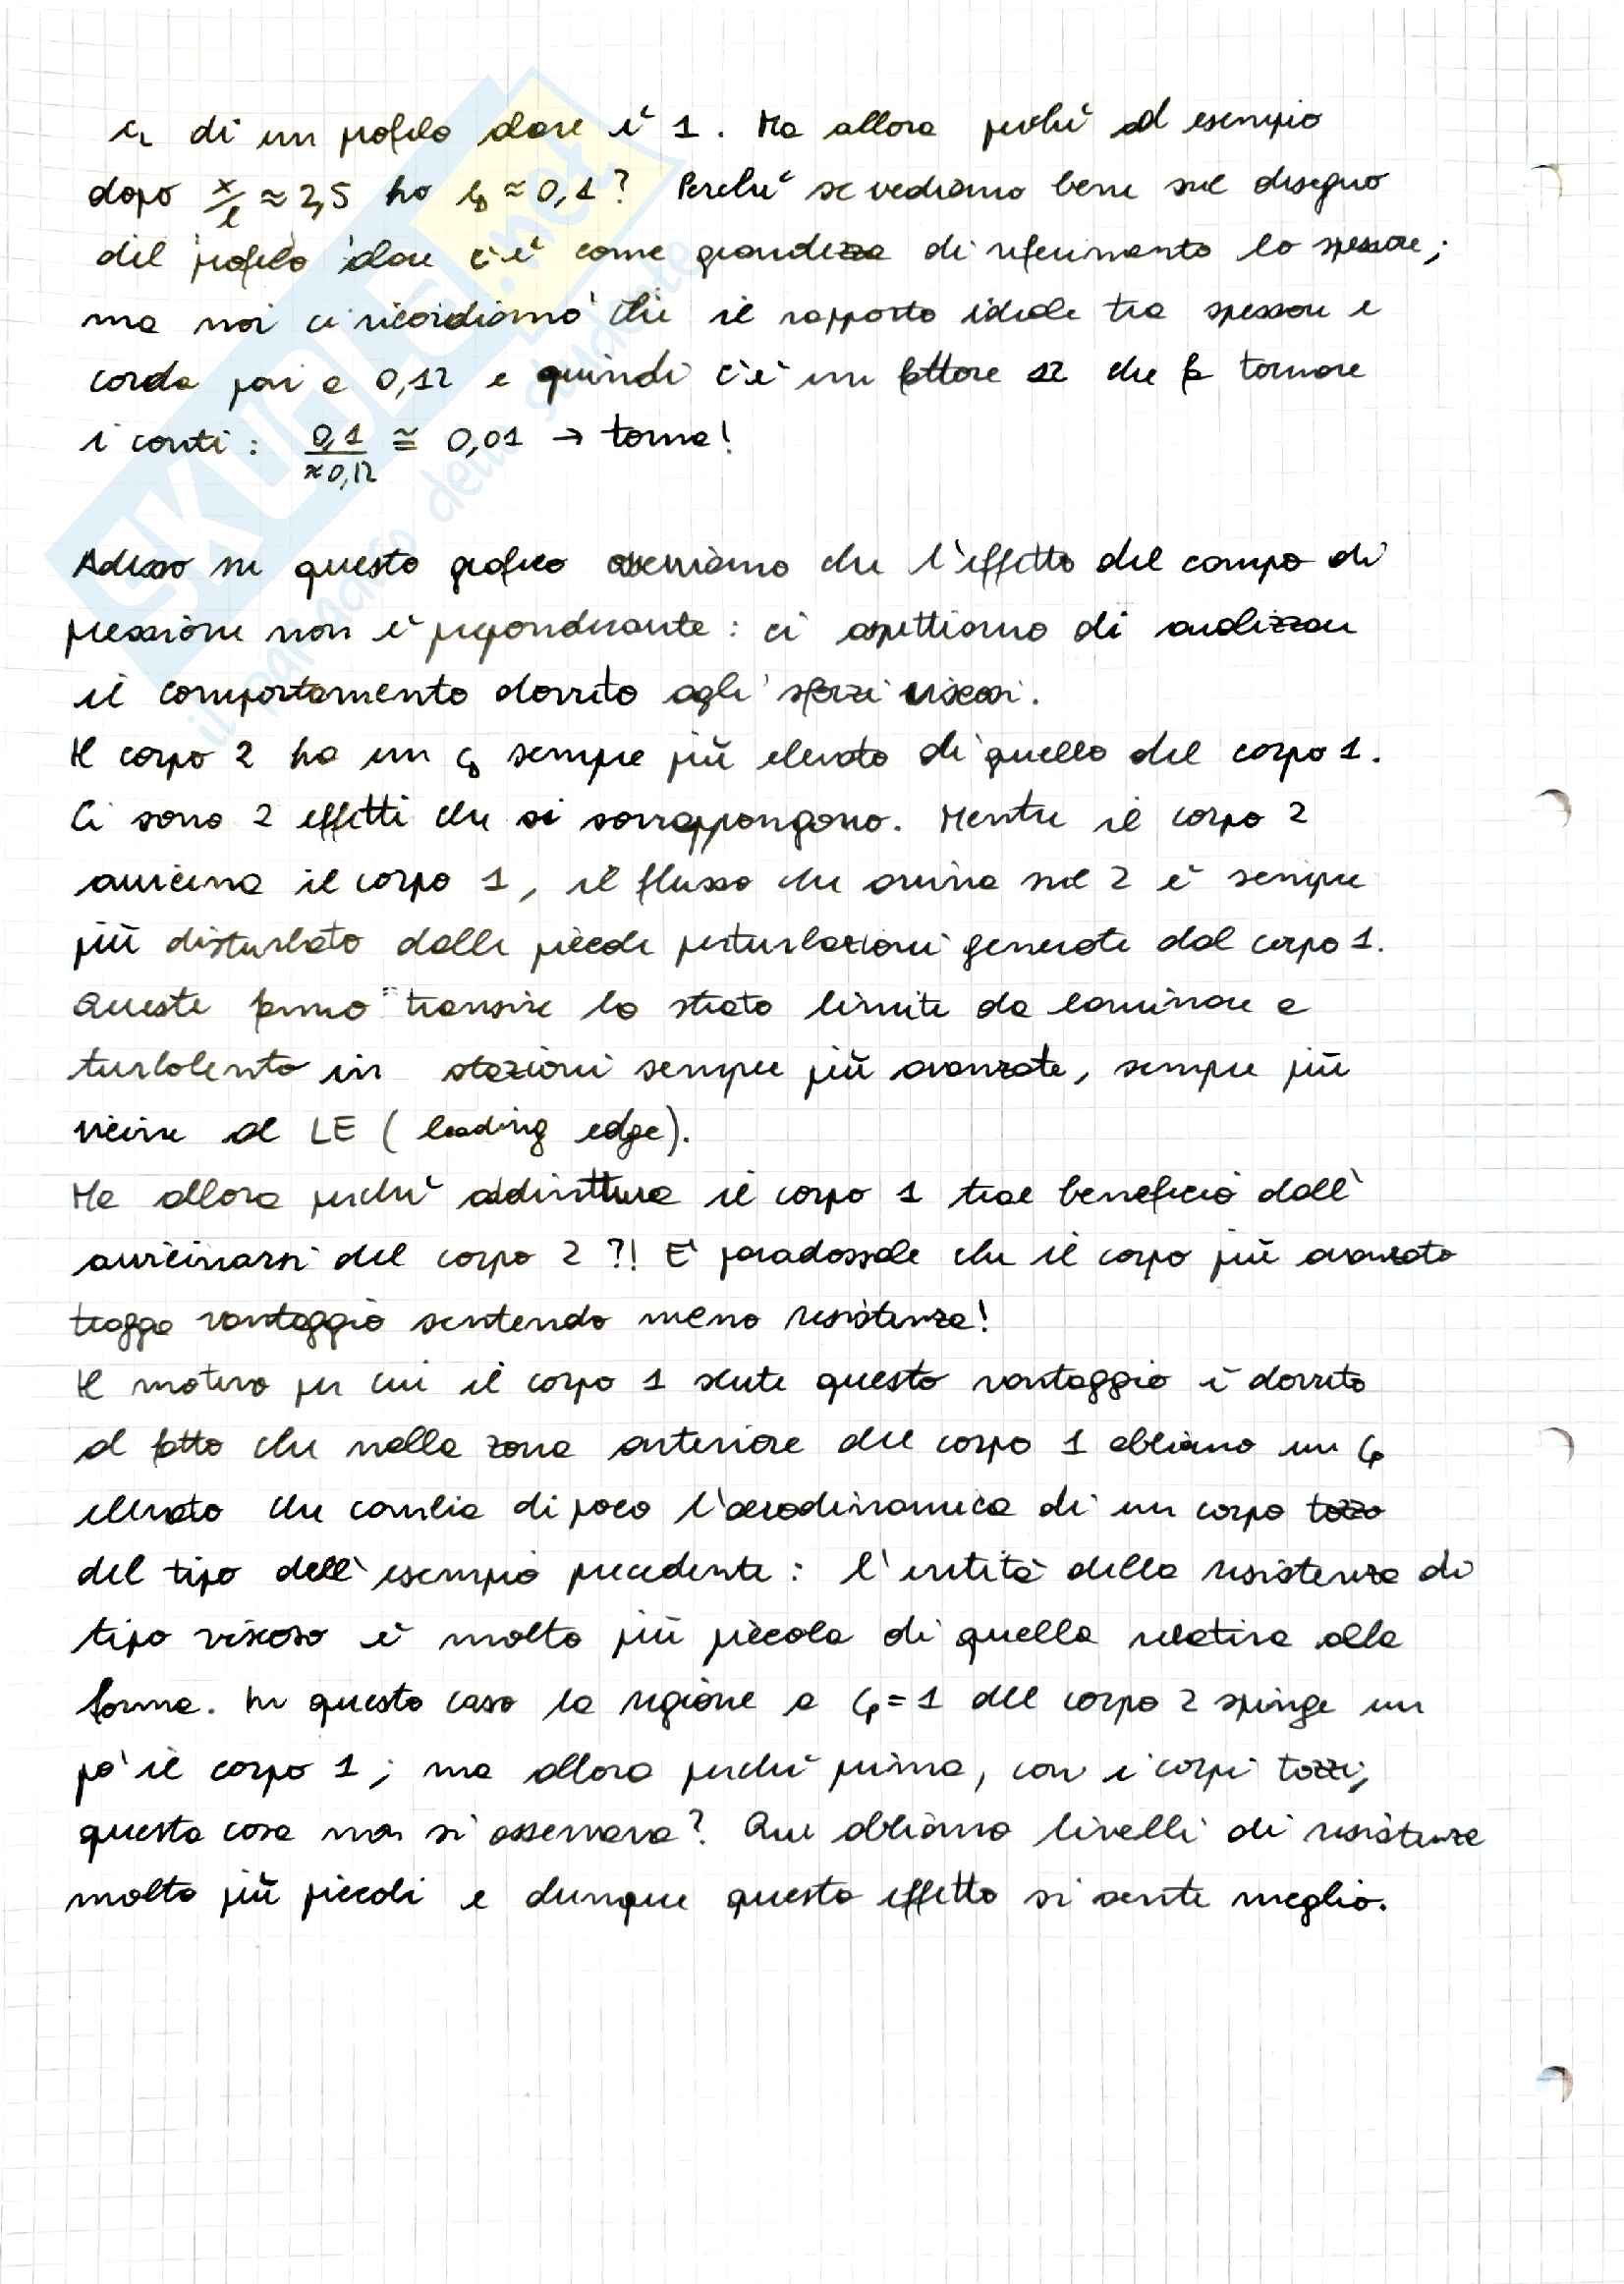 c_L di un profilo alare è 1. Ma allora perchè ad esempio
dopo x/l ≈ 2,5 ho c_D ≈ 0,1? Perchè se vediamo bene sul disegno
del profilo alare c'è come grandezza di riferimento lo spessore;
ma noi ci ricordiamo che il rapporto ideale tra spessore e
corda pari a 0,12 e quindi c'è un fattore 12 che fa tornare
i conti: 0,1/≈0,12 ≅ 0,01 → torna!
Adesso su questo grafico osserviamo che l'effetto del campo di
pressione non è preponderante: ci aspettiamo di analizzare
il comportamento dovuto agli sforzi viscosi.
Il corpo 2 ha un c_D sempre più elevato di quello del corpo 1.
Ci sono 2 effetti che si sovrappongono. Mentre il corpo 2
avvicina il corpo 1, il flusso che arriva sul 2 è sempre
più disturbato dalle piccole perturbazioni generate dal corpo 1.
Queste fanno "transire lo strato limite da laminare a
turbolento in stazioni sempre più avanzate, sempre più
vicine al LE (leading edge).
Ma allora perchè addirittura il corpo 1 trae beneficio dall'
avvicinarsi del corpo 2 ?! E' paradossale che il corpo più avanzato
tragga vantaggio sentendo meno resistenza!
Il motivo per cui il corpo 1 sente questo vantaggio è dovuto
al fatto che nella zona anteriore del corpo 1 abbiamo un c_p
elevato che cambia di poco l'aerodinamica di un corpo tozzo
del tipo dell'esempio precedente: l'entità della resistenza di
tipo viscoso è molto più piccola di quella relativa alla
forma. In questo caso la regione a c_p=1 del corpo 2 spinge un
po' il corpo 1; ma allora perchè prima, con i corpi tozzi,
questa cosa non si osservava? Qui abbiamo livelli di resistenza
molto più piccoli e dunque questo effetto si sente meglio.
SKUOLA.net